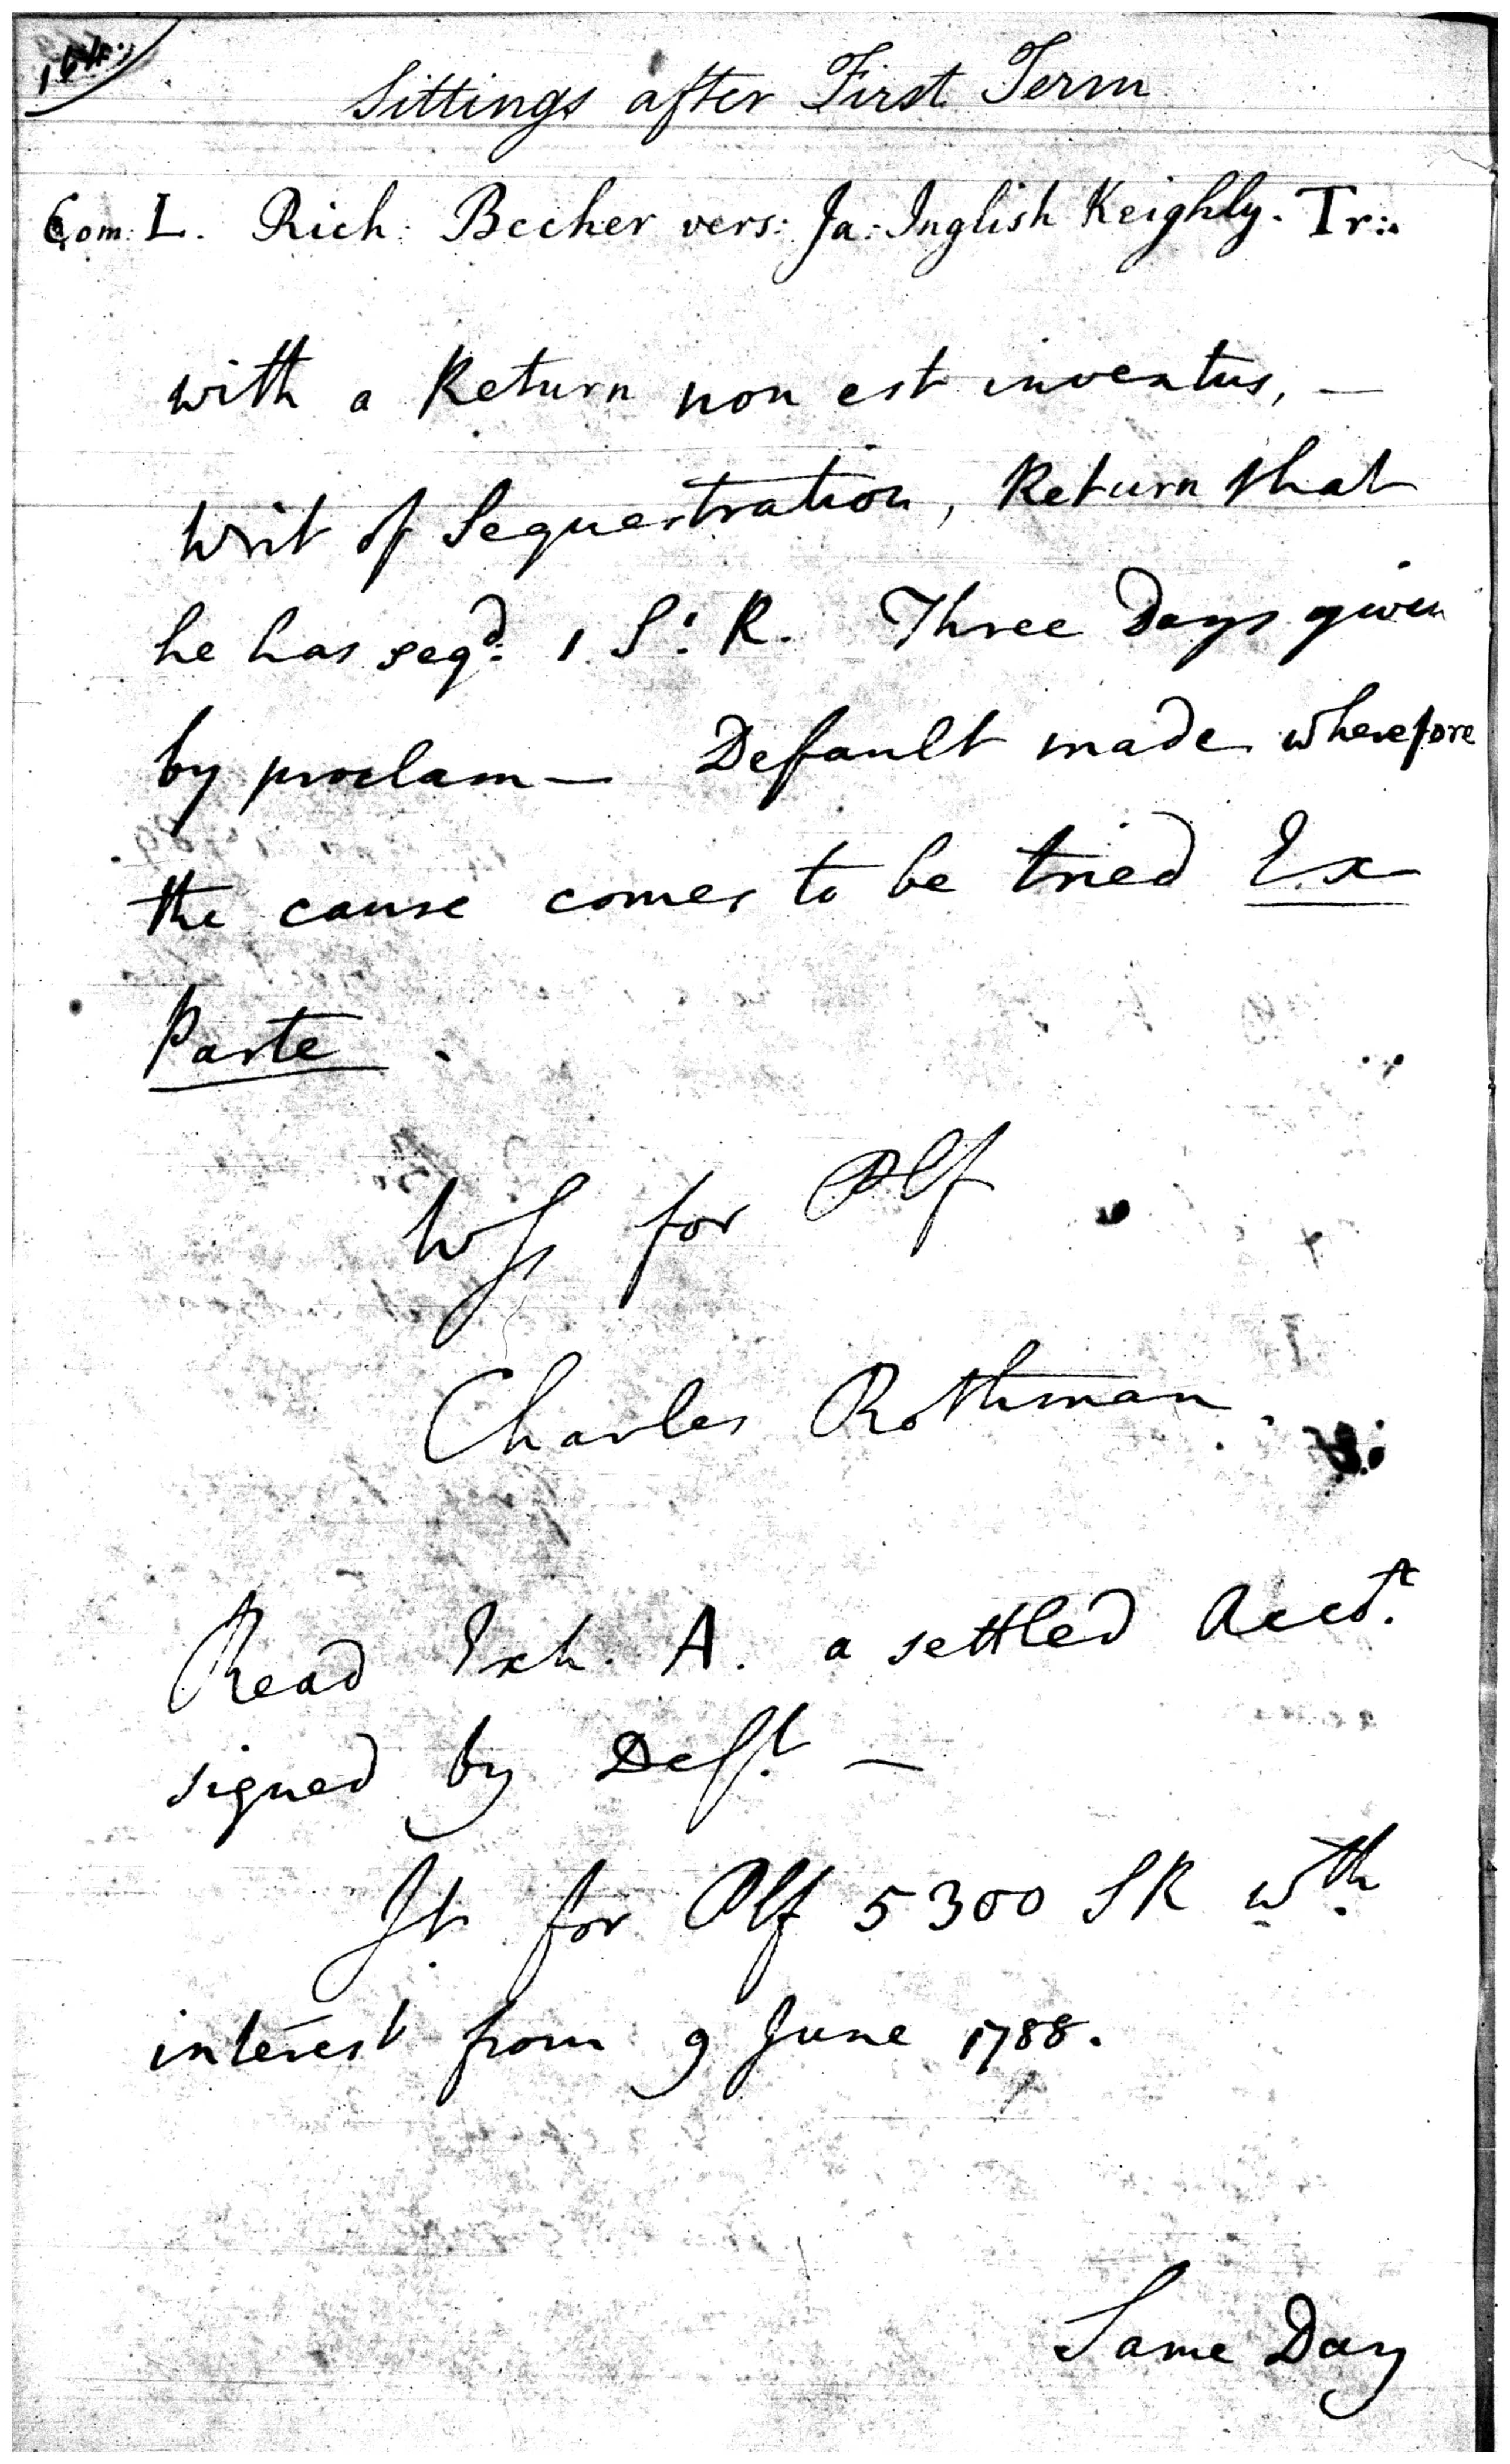 164.
Sittings after First Term
Com: L. Rich: Becher vers: Ja: Inglish Keighly. Tr:
with a Return non est inventus, —
Writ of Sequestration, Return that
he has seqd: 1 S: R. Three Days given
by proclam— Default made wherefore
the cause comes to be tried Ex
Parte.
Wss for Plf
Charles Rothman.
Read Exh. A. a settled Acct.
signed by Deft. —
Jt. for Plf 5300 SR wth.
interest from 9 June 1788.
Same Day